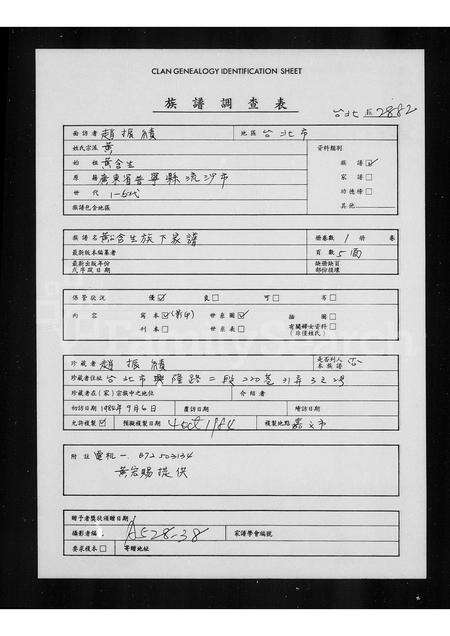 CLAN GENEALOGY IDENTIFICATION SHEET
族譜調查表
台北 2882
面訪者 趙振績 地區 台北市
姓氏宗派 黃
始祖 黃含生
原籍 廣東省普寧縣流沙市
世代 1-6代
族譜包含地區
資料類別
族譜 ☑
家譜 □
功德榜 □
其他
族譜名 黃公含生族下家譜 冊卷數 1 冊 卷
最新版本編纂者 頁數 5 面
最新出版年份 缺冊缺頁
或序跋日期 部份註壞
保管狀況 優 ☑ 良 □ 可 □ 劣 □
內容 寫本 ☑ 世系圖 ☑ 插圖 □
刊本 □ 世系表 □ 有關婦女資料 □
(非僅姓氏)
珍藏者 趙振績 是否列入本族譜 否
珍藏者住址 台北市興隆路二段220巷31弄3之2號
珍藏者在(家)宗族中之地位 介紹者
初訪日期 1984年9月6日 覆訪日期 續訪日期
允許複製 ☑ 預擬複製日期 4 oct 1984 複製地點 嘉義市
附註 電机一. 872503134
黃宏賜提供
贈予者獎狀頒贈日期
攝影者編 A528-38 家譜學會編號
要求複本 □ 寄贈地址